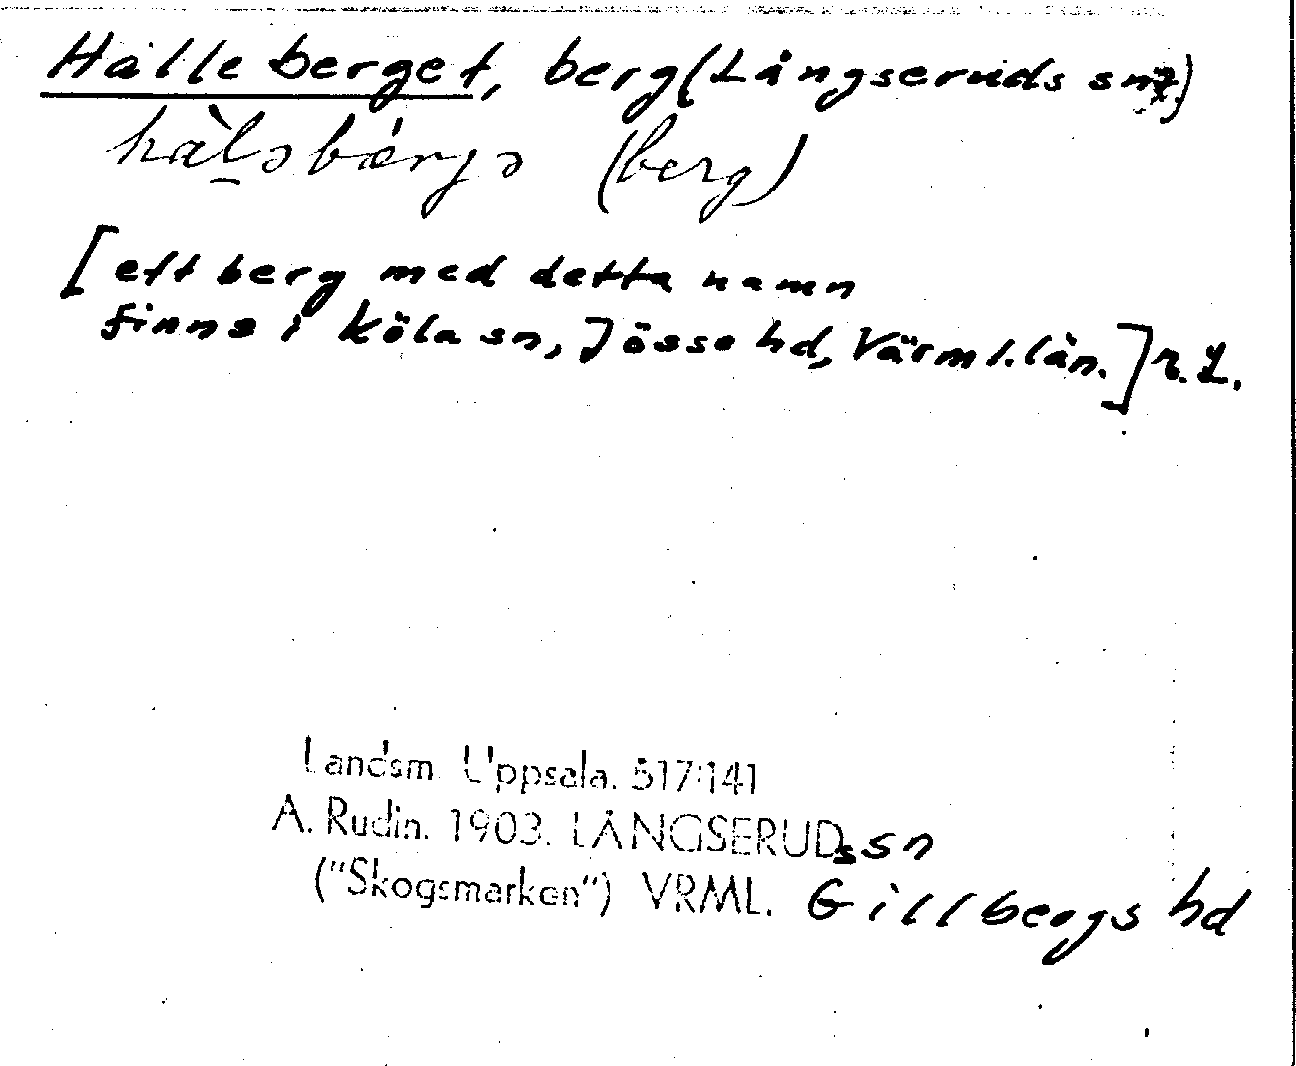 Hålleberget, berg (Långseruds sn?)
hàlsbærjs (berg)
[ett berg med detta namn
finns i Köla sn, Jösse hd, Värml. län.] R.L.
Landsm. Uppsala. 517:141
A. Rudin. 1903. LÅNGSERUDs sn
("Skogsmarken") VRML. Gillbergs hd